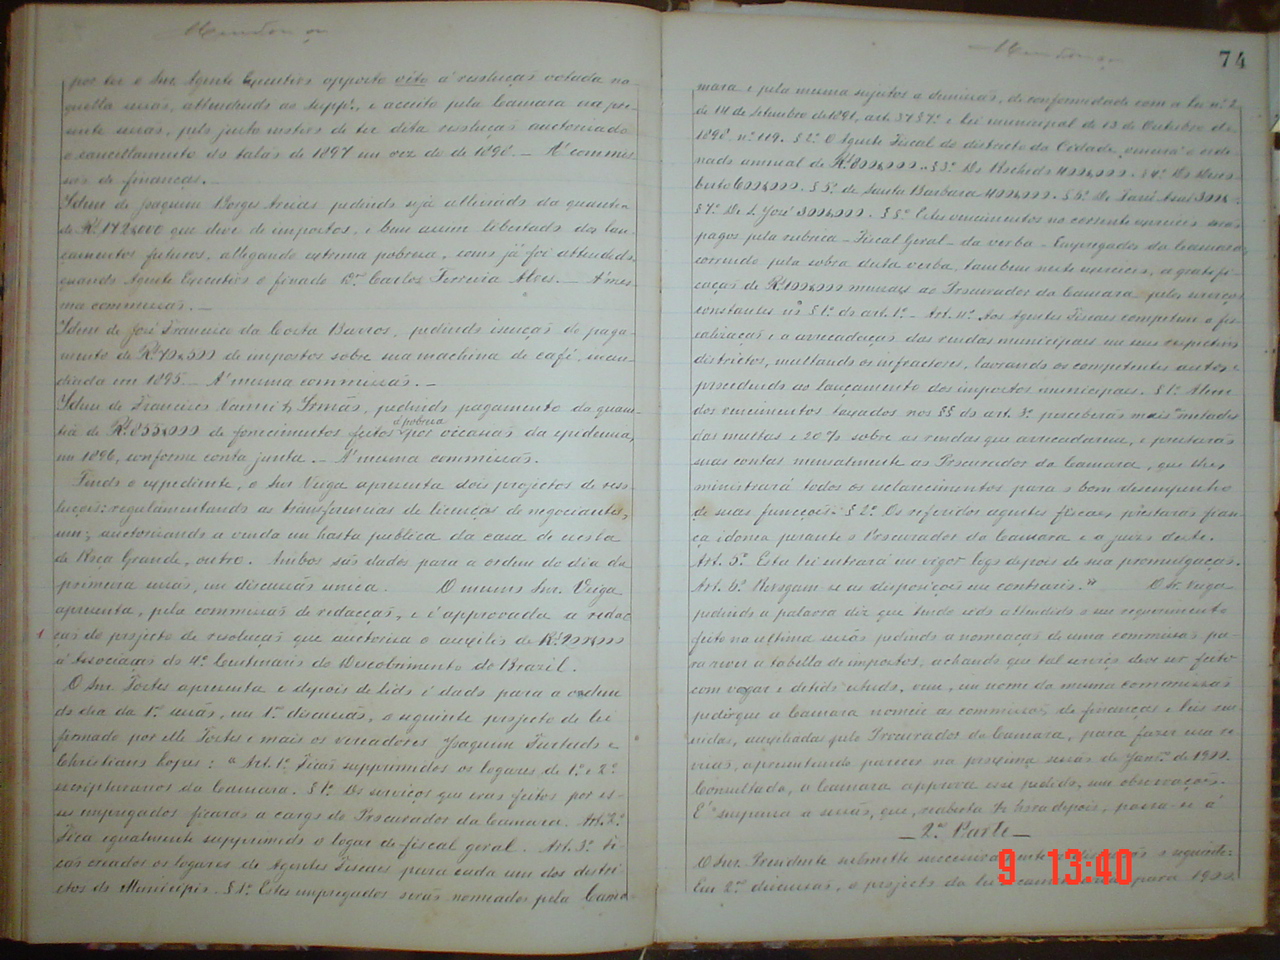 Mendonça
por ter o Snr. Agente Executivo opposto veto á resolução votada na-
quella sessão, attendendo ao supp.e, e acceito pela Camara na pre-
sente sessão, pelo justo motivo de ter dita resolução auctorisado
o cancellamento do talão de 1897 em vez do de 1898. — Á commis-
são de finanças. —
Idem de Joaquim Borges pedindo seja alliviado da quantia
de Rs. 142$000 que deve de impostos, e bem assim libertado dos lan-
çamentos futuros, allegando extrema pobreza, como já foi attendido
quando Agente Executivo o finado Dr. Carlos Ferreira Alves. — Á mes-
ma commissão. —
Idem de José Francisco da Costa Barros, pedindo isenção de paga-
mento de de impostos sobre sua machina de café, incen-
diada em 1895. — Á mesma commissão. —
Idem de Francisco & Irmão, pedindo pagamento da quan-
tia de Rs. 855$000 de fornecimentos feitos á pobreza por occasião da epidemia,
em 1896, conforme conta junta. — Á mesma commissão.
Findo o expediente, o Snr. Veiga apresenta dois projectos de reso-
luções: regulamentando as transferencias de licenças de negociantes,
um; auctorisando a venda em hasta publica da casa de eschola
de Roça Grande, outro. Ambos são dados para a ordem do dia da
primeira sessão, em discussão unica. O mesmo Snr. Veiga
apresenta, pela commissão de redacção, e é approvada a redac-
ção do projecto de resolução que auctorisa o auxilio de Rs. 200$000
á Associação do 4º Centenario do Descobrimento do Brazil.
O Snr. Fortes apresenta e depois de lido é dado para a ordem
do dia da 1ª sessão, em 1ª discussão, o seguinte projecto de lei
firmado por elle Fortes e mais os vereadores Joaquim Furtado e
Christiano Lopes: "Art. 1º Ficão supprimidos os logares de 1º e 2º
escripturarios da Camara. § 1º Os serviços que erão feitos por es-
ses empregados ficarão a cargo do Procurador da Camara. Art. 2º
Fica egualmente supprimido o logar de fiscal geral. Art. 3º Fi-
cão creados os logares de Agentes Fiscaes para cada um dos distri-
ctos do Municipio. § 1º Estes empregados serão nomeados pela Cama-
Mendonça
74
mara e pela mesma sujeitos a demissão, de conformidade com a lei nº 2
de 14 de Setembro de 1891, art. 37 § 7º e lei municipal de 13 de Outubro de
1898 nº 119. § 2º O Agente Fiscal do districto da Cidade vencerá o orde-
nado annual de Rs. 800$000. § 3º Do Rochedo 400$000. § 4º Do Desco-
berto 600$000. § 5º de Santa Barbara 400$000. § 6º De Tarú Assú 300$000.
§ 7º De S. José 300$000. § 8º Estes vencimentos no corrente exercicio serão
pagos pela rubrica — Fiscal Geral — da verba — Empregados da Camara,
correndo pela sobra desta verba, tambem neste exercicio, a gratifi-
cação de Rs. 100$000 mensaes ao Procurador da Camara pelos serviços
constantes do § 1º do art. 1º — Art. 4º Aos Agentes Fiscaes competem a fis-
calisação e a arrecadação das rendas municipaes em seus respectivos
districtos, multando os infractores, lavrando os competentes autos e
procedendo ao lançamento dos impostos municipaes. § 1º Alem
dos vencimentos taxados nos §§ do art. 3º perceberão mais metade
das multas e 20% sobre as rendas que arrecadarem, e prestarão
suas contas mensalmente ao Procurador da Camara, que lhes
ministrará todos os esclarecimentos para o bom desempenho
de suas funcções. § 2º Os referidos agentes fiscaes, prestarão fian-
ça idonea perante o Procurador da Camara e a juizo deste.
Art. 5º Esta lei entrará em vigor logo depois de sua promulgação.
Art. 6º Revogam-se as disposições em contrario." O Sr. Veiga
pedindo a palavra diz que tendo sido attendido o seu requerimento
feito na ultima sessão pedindo a nomeação de uma commissão pa-
ra rever a tabella de impostos, achando que tal serviço deve ser feito
com vagar e detido estudo, vem, em nome da mesma commissão
pedir que a Camara nomeie as commissões de finanças e leis reu-
nidas, auxiliadas pelo Procurador da Camara, para fazer essa re-
visão, apresentando parecer na proxima sessão de Janrº de 1900.
Consultada, a Camara approva esse pedido, sem observações.
É suspensa a sessão, que, reaberta ½ hora depois, passa-se á
— 2ª Parte —
O Snr. Presidente submette successivamente á discussão o seguinte:
Em 2ª discussão, o projecto da lei para 1900.
9 13:40